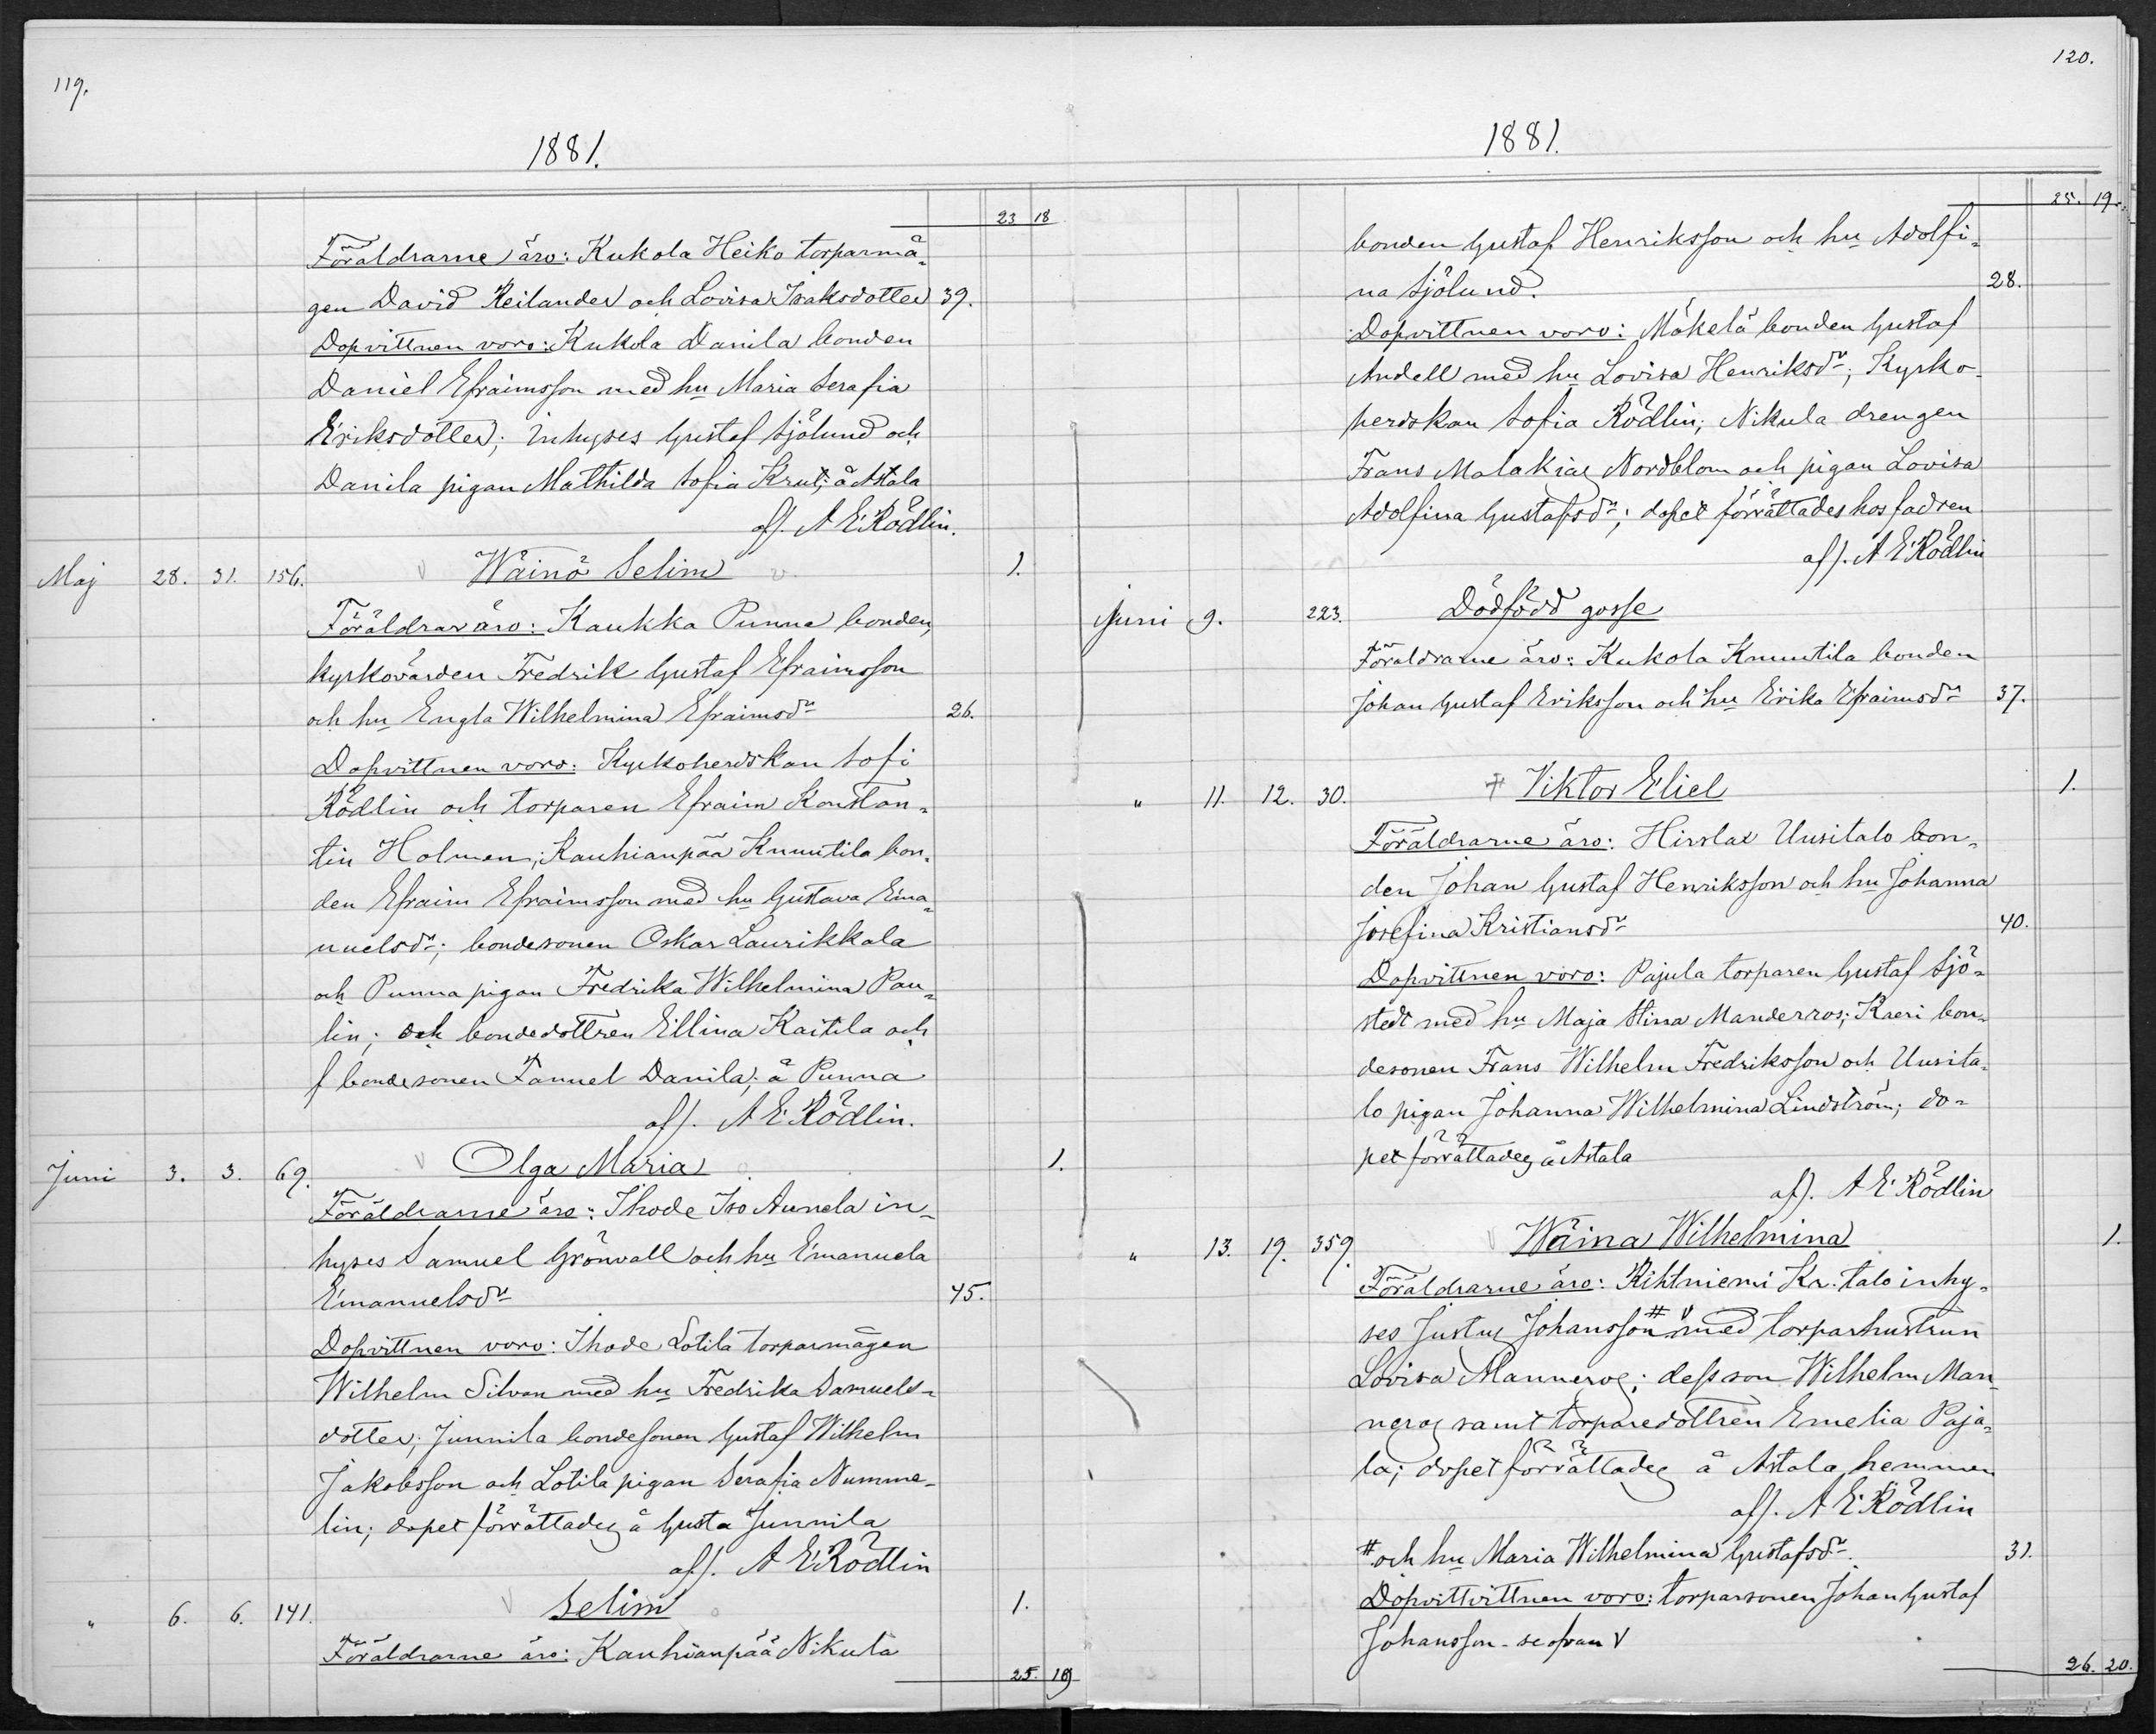 119.
1881.
23 18
Föräldrarne äro: Kukola Heiko torparmå-
gen David Reilander och Lovisa Isaksdotter 39.
Dopvittnen voro: Kukola Danila bonden
Daniel Efraimsson med hu Maria Serafia
Eriksdotter; Inhyses Gustaf Sjölund och
Danila pigan Mathilda Sofia Krut; å Astala
af). A E Rödlin.
Maj 28. 31. 156. Wäinö Selim 1.
Föräldrar äro: Kaukka Punna bonden,
kyrkovärden Fredrik Gustaf Efraimsson
och hu Engla Wilhelmina Efraimsdr 26.
Dopvittnen voro: Kyrkoherdskan Sofi
Rödlin och torparen Efraim Konstan-
tin Holmen; Kauhianpää Knuutila bon-
den Efraim Efraimsson med hu Gustava Ema-
nuelsdr; bondesonen Oskar Laurikkala
och Punna pigan Fredrika Wilhelmina Pau-
lin; och bondedottren Ellina Kaitila och
f bondesonen Fanuel Danila; å Punna
af). A E Rödlin.
Juni 3. 3. 69. Olga Maria 1.
Föräldrarne äro: Ihode Iso Aunela in-
hyses Samuel Grönvall och hu Emanuela
Emanuelsdr 45.
Dopvittnen voro: Ihode Lotila torparmågen
Wilhelm Silvan med hu Fredrika Samuels-
dotter; Junnila bondesonen Gustaf Wilhelm
Jakobsson och Lotila pigan Serafia Numme-
lin; dopet förrättades å Gusta Junnila
af). A E Rödlin
" 6. 6. 141. Selim 1.
Föräldrarne äro: Kauhianpää Nikula
25. 19
120.
1881.
25. 19.
bonden Gustaf Henriksson och hu Adolfi-
na Sjölund. 28.
Dopvittnen voro: Mäkelä bonden Gustaf
Andell med hu Lovisa Henriksdr; Kyrko-
herdskan Sofia Rödlin; Nikula drengen
Frans Malakias Nordblom och pigan Lovisa
Adolfina Gustafsdr; dopet förrättades hos fadren
af). A E Rödlin
Juni 9. 223. Dödfödd gosse
Föräldrarne äro: Kukola Knuutila bonden
Johan Gustaf Eriksson och hu Erika Efraimsdr 37.
" 11. 12. 30. Viktor Eliel 1.
Föräldrarne äro: Hirslax Uusitalo bon-
den Johan Gustaf Henriksson och hu Johanna
Josefina Kristiansdr 40.
Dopvittnen voro: Pajula torparen Gustaf Sjö-
stedt med hu Maja Stina Manderros; Kaeri bon-
desonen Frans Wilhelm Fredriksson och Uusita-
lo pigan Johanna Wilhelmina Lindström; do-
pet förrättades å Astala
af). A E Rödlin
" 13. 19. 359. Wäina Wilhelmina 1.
Föräldrarne äro: Rihtniemi Kr. talo inhy-
ses Justus Johansson # V med torparhustrun
Lovisa Manneros; dess son Wilhelm Man-
neros samt torparedottren Emelia Paja-
la; dopet förrättades å Astala hemman
af). A E Rödlin
# och hu Maria Wilhelmina Gustafsdr. 31.
Dopvittvittnen voro: torparsonen Johan Gustaf
Johansson - se ofvan V
26. 20.